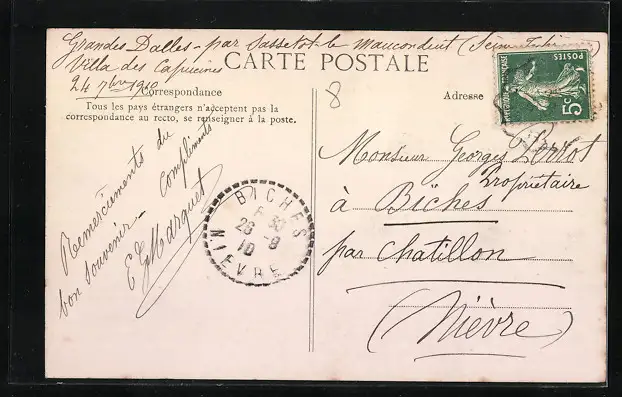 Grandes Dalles - par Sassetot-le Mauconduit (Seine Infre)
Villa des Capucines
24 7bre 1910
CARTE POSTALE
Correspondance
Tous les pays étrangers n'acceptent pas la
correspondance au recto, se renseigner à la poste.
Remerciements du
bon souvenir - Compliments
E G Marquet
BICHES
26 -9
10
NIEVRE
8
Adresse
POSTES
5c
Monsieur Georges
Propriétaire
à Bîches
par Chatillon
(Nièvre)